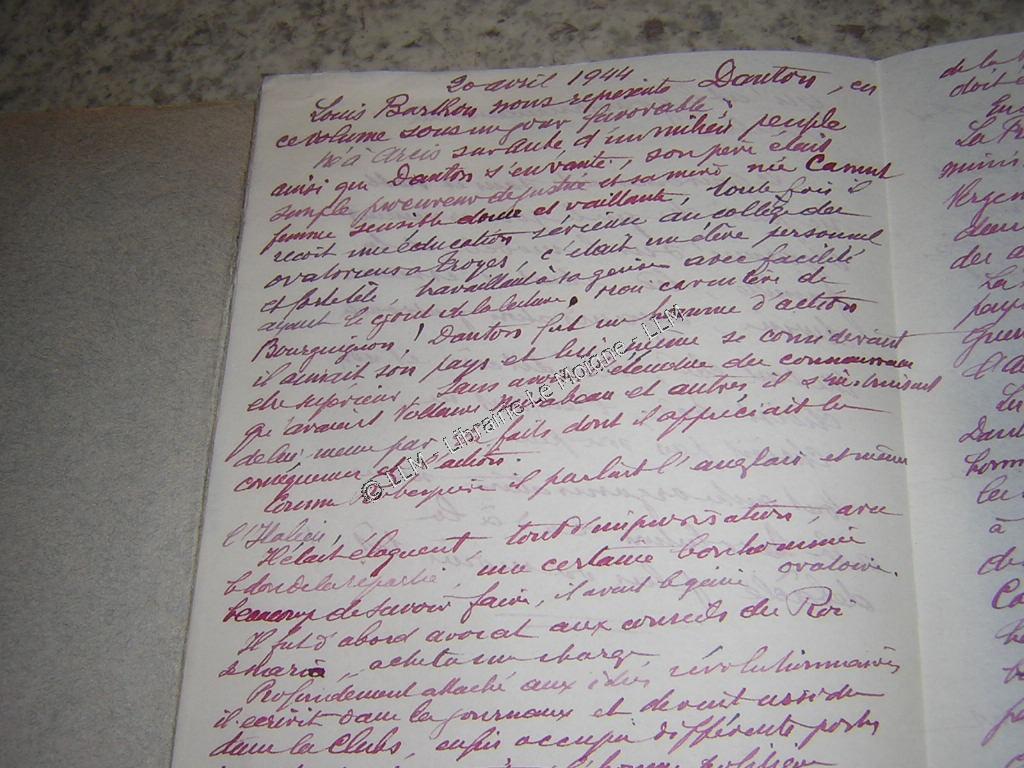 20 avril 1944
Louis Barthou nous represente Danton, en
ce volume sous un jour favorable.
Né à Arcis sur Aube, d'un milieu peuple
ainsi que Danton s'en vante, son père était
simple procureur de justice et sa mère née Camut
femme sensible douce et vaillante, toutefois il
recoit une éducation sérieuse au collège des
oratoriens a Troyes, c'était un élève personnel
et entêté, travaillant à sa guise avec facilité
ayant le goût de la lecture, son caractère de
Bourguignon! Danton fut un homme d'action
il aimait son pays et lui même se considerant
etre supérieur. Sans avoir l'étendue des connaissances
qu'avaient Voltaire Mirabeau et autres, il s'instruisait
de lui meme par les faits, dont il appréciait les
conséquences et l'action.
Comme Robespierre il parlait l'anglais et même
l'Italien,
Il était éloquent tout d'improvisation, avec
le don de la repartie, une certaine bonhommie
beaucoup de savoir faire, il avait le génie oratoire.
Il fut d'abord avocat aux conseils du Roi
se maria, acheta une charge
Profondement attaché aux idées révolutionnaires
il ecrivit dans les journaux et devint assidu
dans les Clubs, enfin occupa différents postes
l'homme politique
de la
doit
La
minis
Vergen
des a
La
pays
Guerr
Dant
homm
les
à
de
© LLM - Librairie Le Moigne - LLM